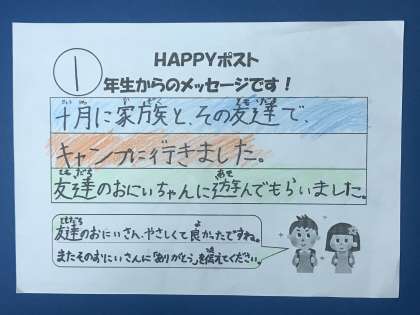 HAPPYポスト
1年生からのメッセージです！
十月に家族と、その友達で、
キャンプに行きました。
友達のおにいちゃんに遊んでもらいました。
友達のおにいさん、やさしくて良かったですね。
またそのおにいさんに「ありがとう」を伝えてください。